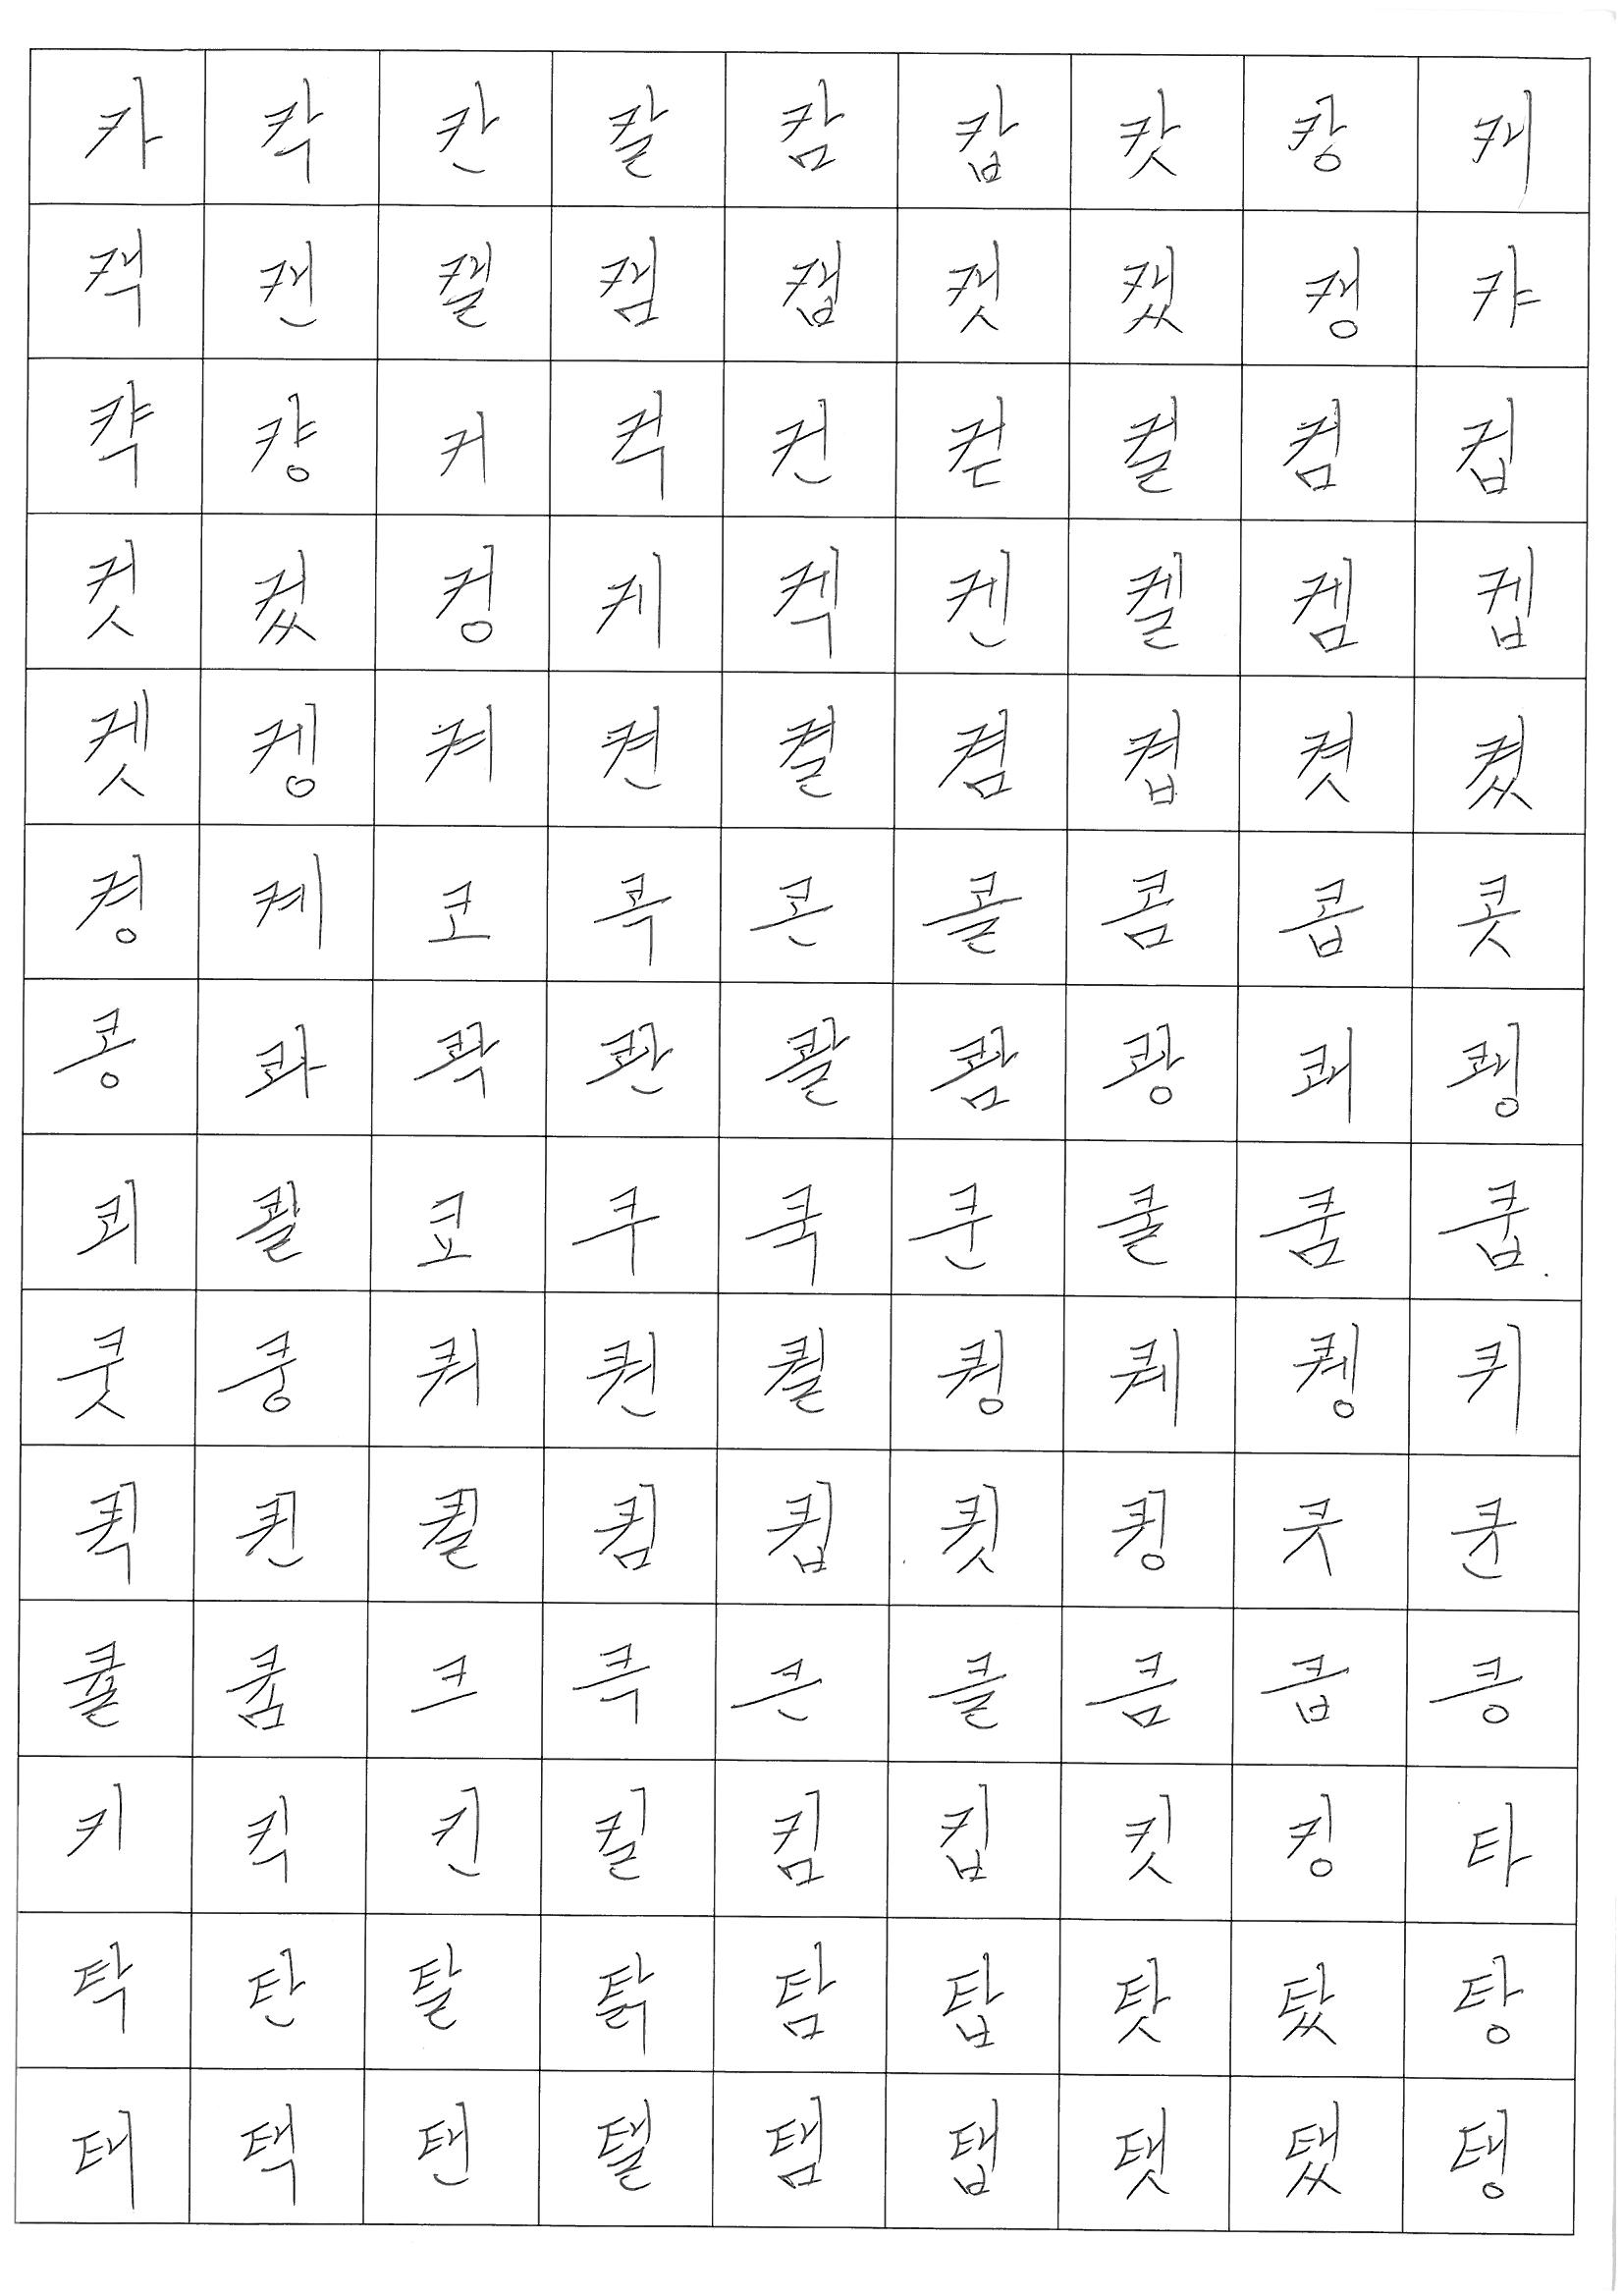 카 칵 칸 칼 캄 캅 캇 캉 캐
캑 캔 캘 캠 캡 캣 캤 캥 캬
캭 컁 커 컥 컨 컫 컬 컴 컵
컷 컸 컹 케 켁 켄 켈 켐 켑
켓 켕 켜 켠 켤 켬 켭 켯 켰
켱 켸 코 콕 콘 콜 콤 콥 콧
콩 콰 콱 콴 콸 쾀 쾅 쾌 쾡
쾨 쾰 쿄 쿠 쿡 쿤 쿨 쿰 쿱
쿳 쿵 쿼 퀀 퀄 퀑 퀘 퀭 퀴
퀵 퀸 퀼 큄 큅 큇 큉 큐 큔
큘 큠 크 큭 큰 클 큼 큽 킁
키 킥 킨 킬 킴 킵 킷 킹 타
탁 탄 탈 탉 탐 탑 탓 탔 탕
태 택 탠 탤 탬 탭 탯 탰 탱